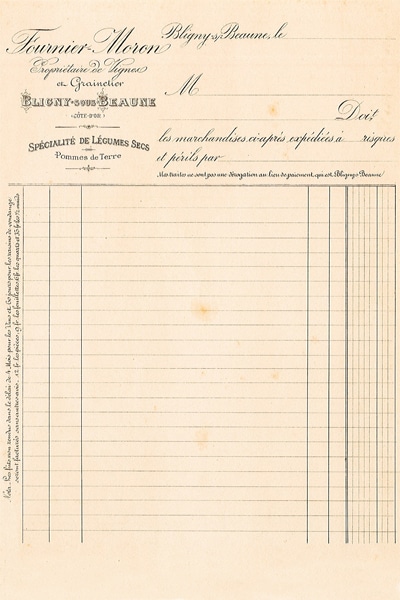 Fournier-Moron
Propriétaire de Vignes
et Grainetier
BLIGNY-SOUS-BEAUNE
(CÔTE-D'OR)
SPÉCIALITÉ DE LÉGUMES SECS
Pommes de Terre
Bligny s/s Beaune, le
M
Doit
les marchandises ci-après expédiées à risques
et périls par
Mes traites ne sont pas une dérogation au lieu de paiement, qui est Bligny s/s Beaune
Nota. Les fûts non rendus dans le délai de 4 Mois pour les Vins et 60 jours pour les de vendange
seront facturés sans autre avis. 12 f. les pièces. 9 f. les feuillettes. 6 f. les quarts et